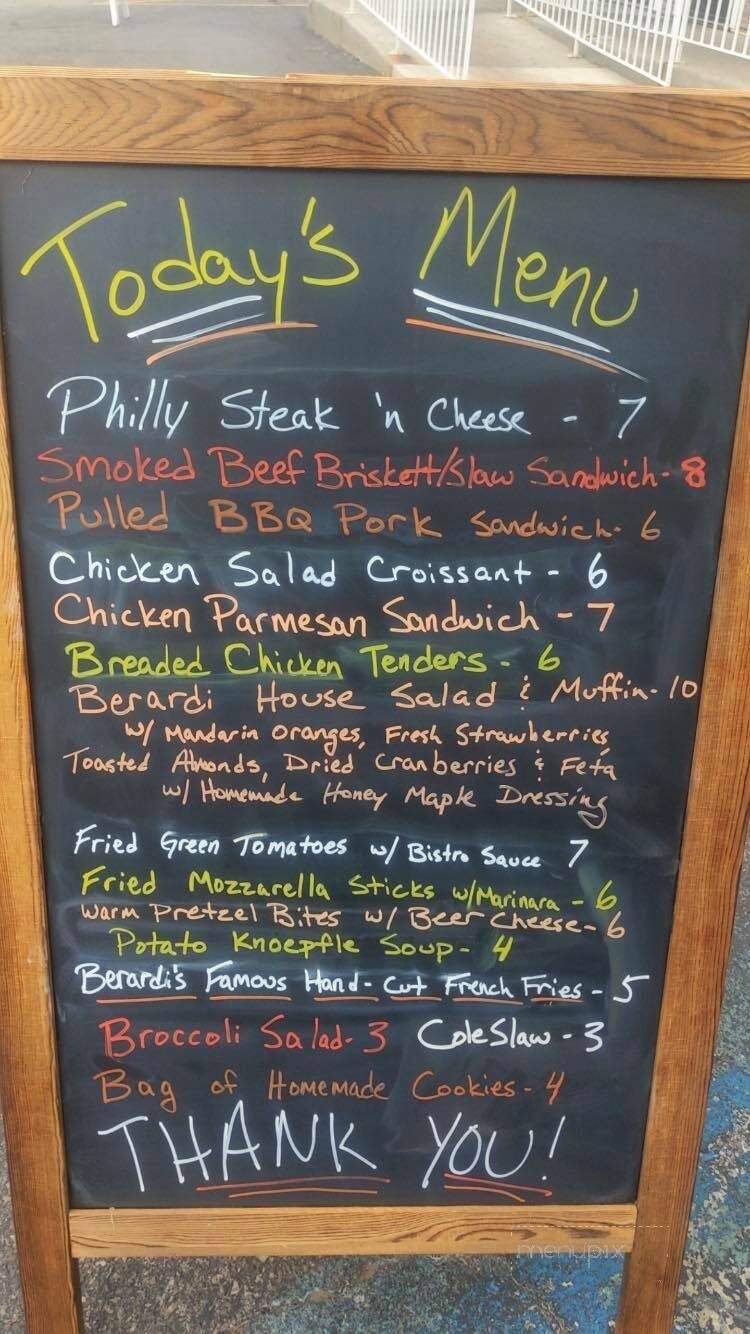 Today's Menu
Philly Steak 'n Cheese - 7
Smoked Beef Briskett/Slaw Sandwich - 8
Pulled BBQ Pork Sandwich - 6
Chicken Salad Croissant - 6
Chicken Parmesan Sandwich - 7
Breaded Chicken Tenders - 6
Berardi House Salad & Muffin - 10
w/ Mandarin Oranges, Fresh Strawberries
Toasted Almonds, Dried Cranberries & Feta
w/ Homemade Honey Maple Dressing
Fried Green Tomatoes w/ Bistro Sauce 7
Fried Mozzarella Sticks w/Marinara - 6
Warm Pretzel Bites w/ Beer Cheese - 6
Potato Knoepfle Soup - 4
Berardi's Famous Hand-Cut French Fries - 5
Broccoli Salad - 3 Cole Slaw - 3
Bag of Homemade Cookies - 4
THANK YOU!
menupix